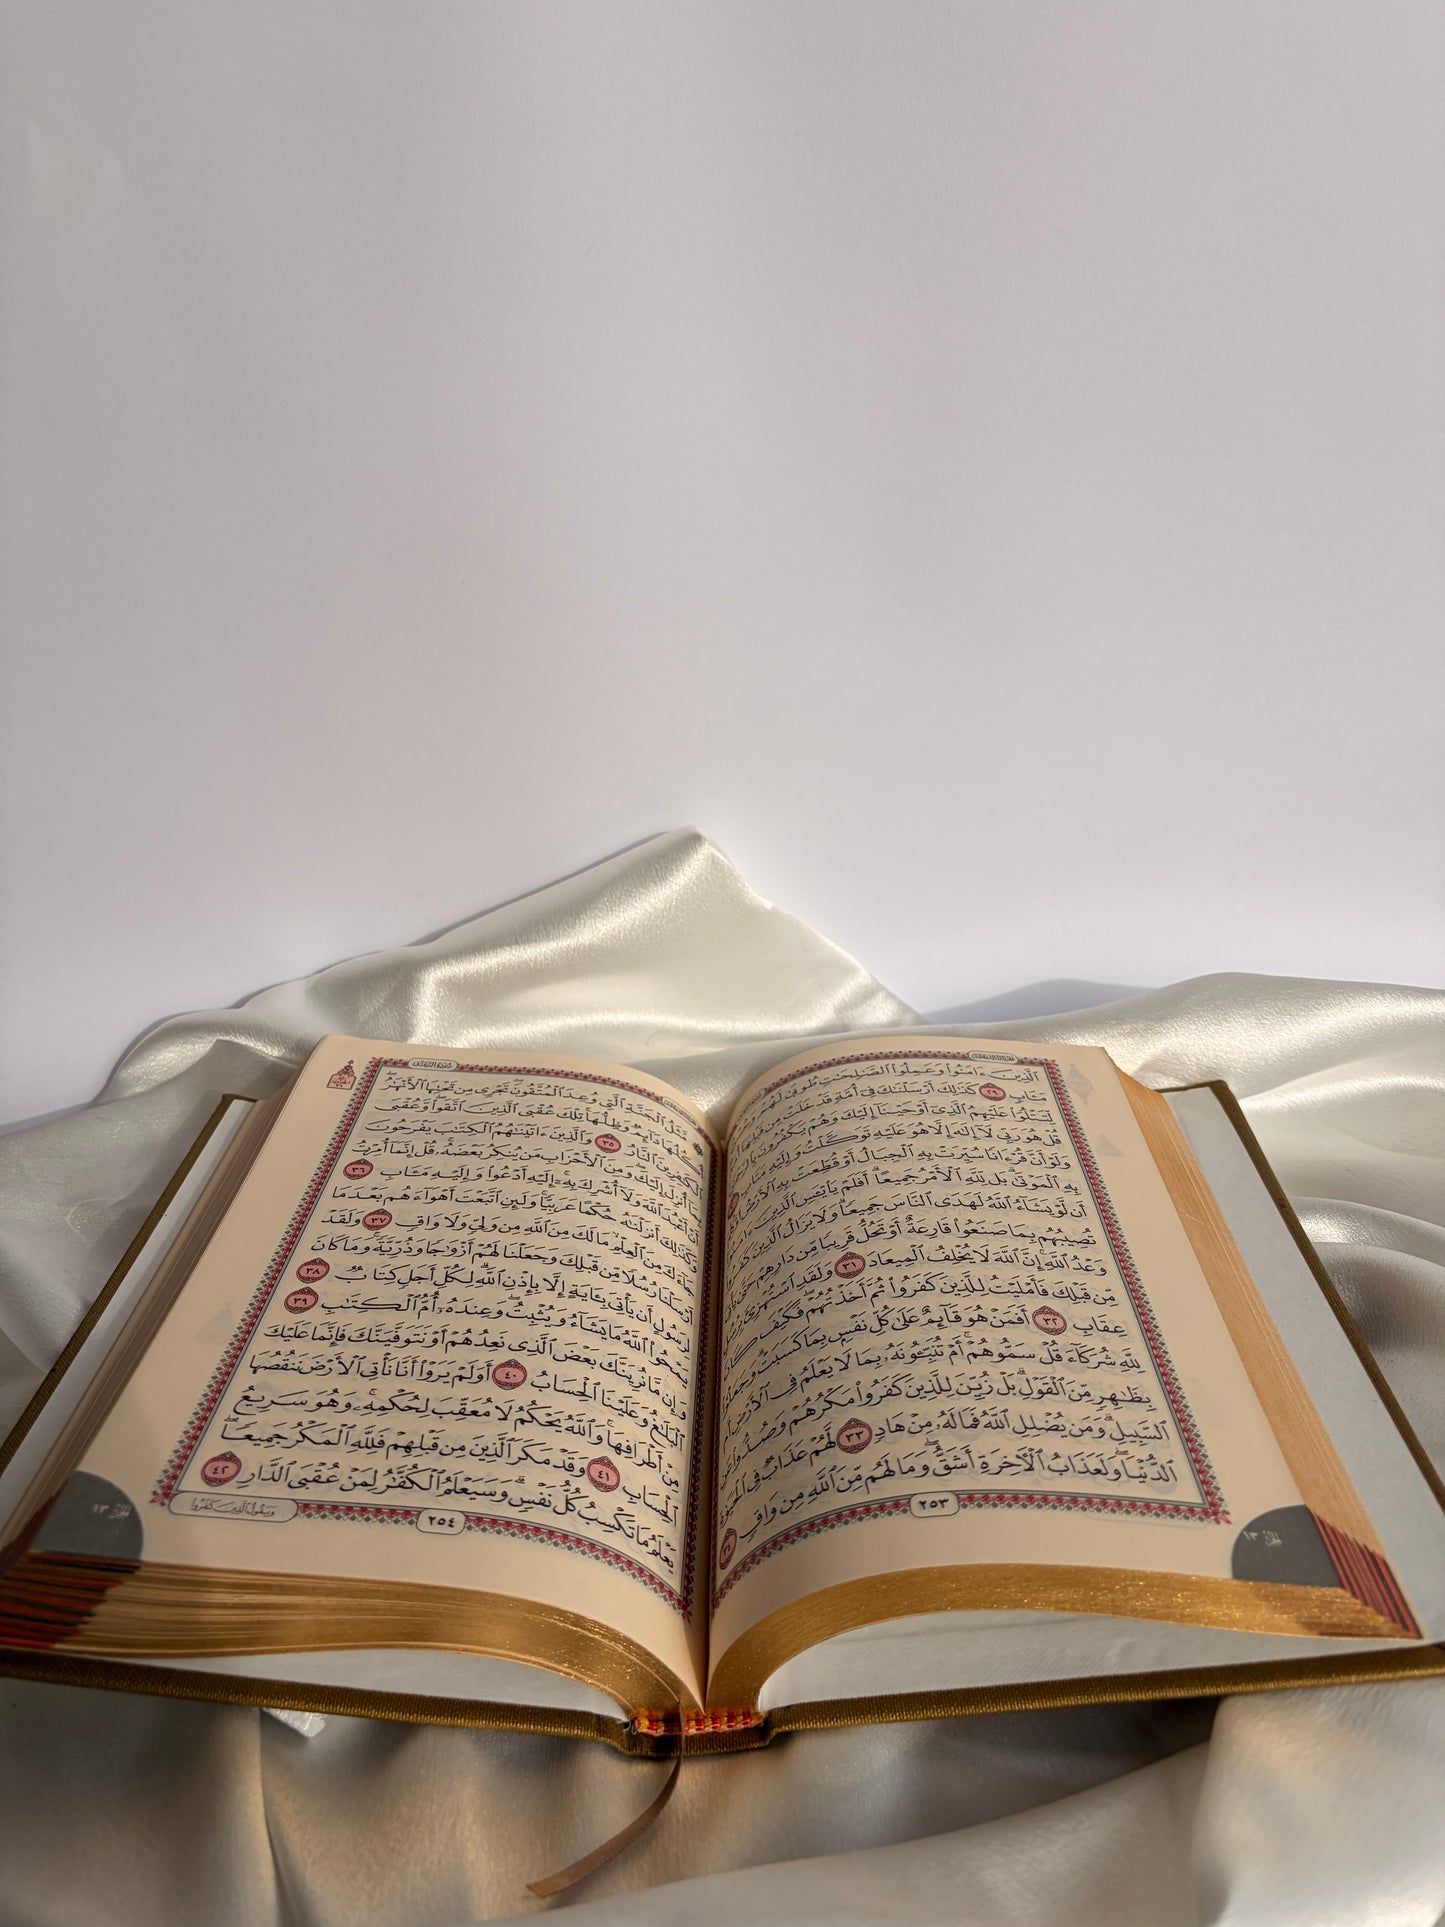 ٱلَّذِينَ ءَامَنُوا۟ وَعَمِلُوا۟ ٱلصَّٰلِحَٰتِ طُوبَىٰ لَهُمْ وَحُسْنُ
مَـَٔابٍ ٢٩ كَذَٰلِكَ أَرْسَلْنَٰكَ فِىٓ أُمَّةٍ قَدْ خَلَتْ مِن قَبْلِهَآ
لِّتَتْلُوَا۟ عَلَيْهِمُ ٱلَّذِىٓ أَوْحَيْنَآ إِلَيْكَ وَهُمْ يَكْفُرُونَ
قُلْ هُوَ رَبِّى لَآ إِلَٰهَ إِلَّا هُوَ عَلَيْهِ تَوَكَّلْتُ وَإِلَيْهِ مَتَابِ
وَلَوْ أَنَّ قُرْءَانًا سُيِّرَتْ بِهِ ٱلْجِبَالُ أَوْ قُطِّعَتْ بِهِ ٱلْأَرْضُ
بِهِ ٱلْمَوْتَىٰۗ بَل لِّلَّهِ ٱلْأَمْرُ جَمِيعًاۗ أَفَلَمْ يَا۟يْـَٔسِ ٱلَّذِينَ
أَن لَّوْ يَشَآءُ ٱللَّهُ لَهَدَى ٱلنَّاسَ جَمِيعًاۗ وَلَا يَزَالُ ٱلَّذِينَ كَفَرُوا۟
تُصِيبُهُم بِمَا صَنَعُوا۟ قَارِعَةٌ أَوْ تَحُلُّ قَرِيبًا مِّن دَارِهِمْ حَتَّىٰ
وَعْدُ ٱللَّهِۚ إِنَّ ٱللَّهَ لَا يُخْلِفُ ٱلْمِيعَادَ ٣١ وَلَقَدِ ٱسْتُهْزِئَ
مِّن قَبْلِكَ فَأَمْلَيْتُ لِلَّذِينَ كَفَرُوا۟ ثُمَّ أَخَذْتُهُمْۖ فَكَيْفَ
عِقَابِ ٣٢ أَفَمَنْ هُوَ قَآئِمٌ عَلَىٰ كُلِّ نَفْسٍۭ بِمَا كَسَبَتْۗ وَجَعَلُوا۟
لِلَّهِ شُرَكَآءَ قُلْ سَمُّوهُمْۚ أَمْ تُنَبِّـُٔونَهُۥ بِمَا لَا يَعْلَمُ فِى ٱلْأَرْضِ أَم
بِظَٰهِرٍ مِّنَ ٱلْقَوْلِۗ بَلْ زُيِّنَ لِلَّذِينَ كَفَرُوا۟ مَكْرُهُمْ وَصُدُّوا۟ عَنِ
ٱلسَّبِيلِۗ وَمَن يُضْلِلِ ٱللَّهُ فَمَا لَهُۥ مِنْ هَادٍ ٣٣ لَّهُمْ عَذَابٌ فِى ٱلْحَيَوٰةِ
ٱلدُّنْيَاۖ وَلَعَذَابُ ٱلْءَاخِرَةِ أَشَقُّۖ وَمَا لَهُم مِّنَ ٱللَّهِ مِن وَاقٍ ٣٤
٢٥٣
الجزء ١٣
مَّثَلُ ٱلْجَنَّةِ ٱلَّتِى وُعِدَ ٱلْمُتَّقُونَۖ تَجْرِى مِن تَحْتِهَا ٱلْأَنْهَٰرُۖ
أُكُلُهَا دَآئِمٌ وَظِلُّهَاۚ تِلْكَ عُقْبَى ٱلَّذِينَ ٱتَّقَوا۟ۖ وَّعُقْبَى
ٱلْكَٰفِرِينَ ٱلنَّارُ ٣٥ وَٱلَّذِينَ ءَاتَيْنَٰهُمُ ٱلْكِتَٰبَ يَفْرَحُونَ
بِمَآ أُنزِلَ إِلَيْكَۖ وَمِنَ ٱلْأَحْزَابِ مَن يُنكِرُ بَعْضَهُۥۚ قُلْ إِنَّمَآ أُمِرْتُ
أَنْ أَعْبُدَ ٱللَّهَ وَلَآ أُشْرِكَ بِهِۦٓۚ إِلَيْهِ أَدْعُوا۟ وَإِلَيْهِ مَـَٔابِ ٣٦
وَكَذَٰلِكَ أَنزَلْنَٰهُ حُكْمًا عَرَبِيًّاۚ وَلَئِنِ ٱتَّبَعْتَ أَهْوَآءَهُم بَعْدَ مَا
جَآءَكَ مِنَ ٱلْعِلْمِ مَا لَكَ مِنَ ٱللَّهِ مِن وَلِىٍّ وَلَا وَاقٍ ٣٧ وَلَقَدْ
أَرْسَلْنَا رُسُلًا مِّن قَبْلِكَ وَجَعَلْنَا لَهُمْ أَزْوَٰجًا وَذُرِّيَّةًۚ وَمَا كَانَ
لِرَسُولٍ أَن يَأْتِىَ بِـَٔايَةٍ إِلَّا بِإِذْنِ ٱللَّهِۗ لِكُلِّ أَجَلٍ كِتَابٌ ٣٨
يَمْحُوا۟ ٱللَّهُ مَا يَشَآءُ وَيُثْبِتُۖ وَعِندَهُۥٓ أُمُّ ٱلْكِتَٰبِ ٣٩
وَإِن مَّا نُرِيَنَّكَ بَعْضَ ٱلَّذِى نَعِدُهُمْ أَوْ نَتَوَفَّيَنَّكَ فَإِنَّمَا عَلَيْكَ
ٱلْبَلَٰغُ وَعَلَيْنَا ٱلْحِسَابُ ٤٠ أَوَلَمْ يَرَوْا۟ أَنَّا نَأْتِى ٱلْأَرْضَ نَنقُصُهَا
مِنْ أَطْرَافِهَاۚ وَٱللَّهُ يَحْكُمُ لَا مُعَقِّبَ لِحُكْمِهِۦۚ وَهُوَ سَرِيعُ
ٱلْحِسَابِ ٤١ وَقَدْ مَكَرَ ٱلَّذِينَ مِن قَبْلِهِمْ فَلِلَّهِ ٱلْمَكْرُ جَمِيعًاۖ
يَعْلَمُ مَا تَكْسِبُ كُلُّ نَفْسٍۗ وَسَيَعْلَمُ ٱلْكُفَّٰرُ لِمَنْ عُقْبَى ٱلدَّارِ ٤٢
وَيَقُولُ الَّذِينَ كَفَرُوا
٢٥٤
الجزء ١٣